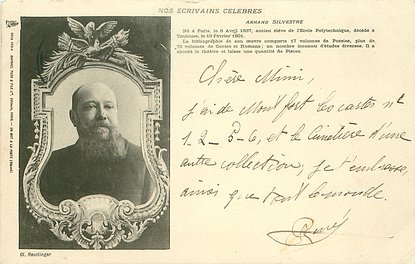 NOS ECRIVAINS CELEBRES
ARMAND SILVESTRE
Né à Paris, le 8 Avril 1837, ancien élève de l'Ecole Polytechnique, décédé à
Toulouse, le 19 Février 1901.
La bibliographie de son œuvre comporte 17 volumes de Poésies, plus de
70 volumes de Contes et Romans; un nombre inconnu d'études diverses. Il a
abordé le théâtre et laisse une quantité de Pièces.
Chère Mimi,
j'ai de Montfort les cartes n°
1-2-5-6, et le Cimetière d'une
autre collection, je t'embrasse,
ainsi que tout le monde.
Cl. Reutlinger